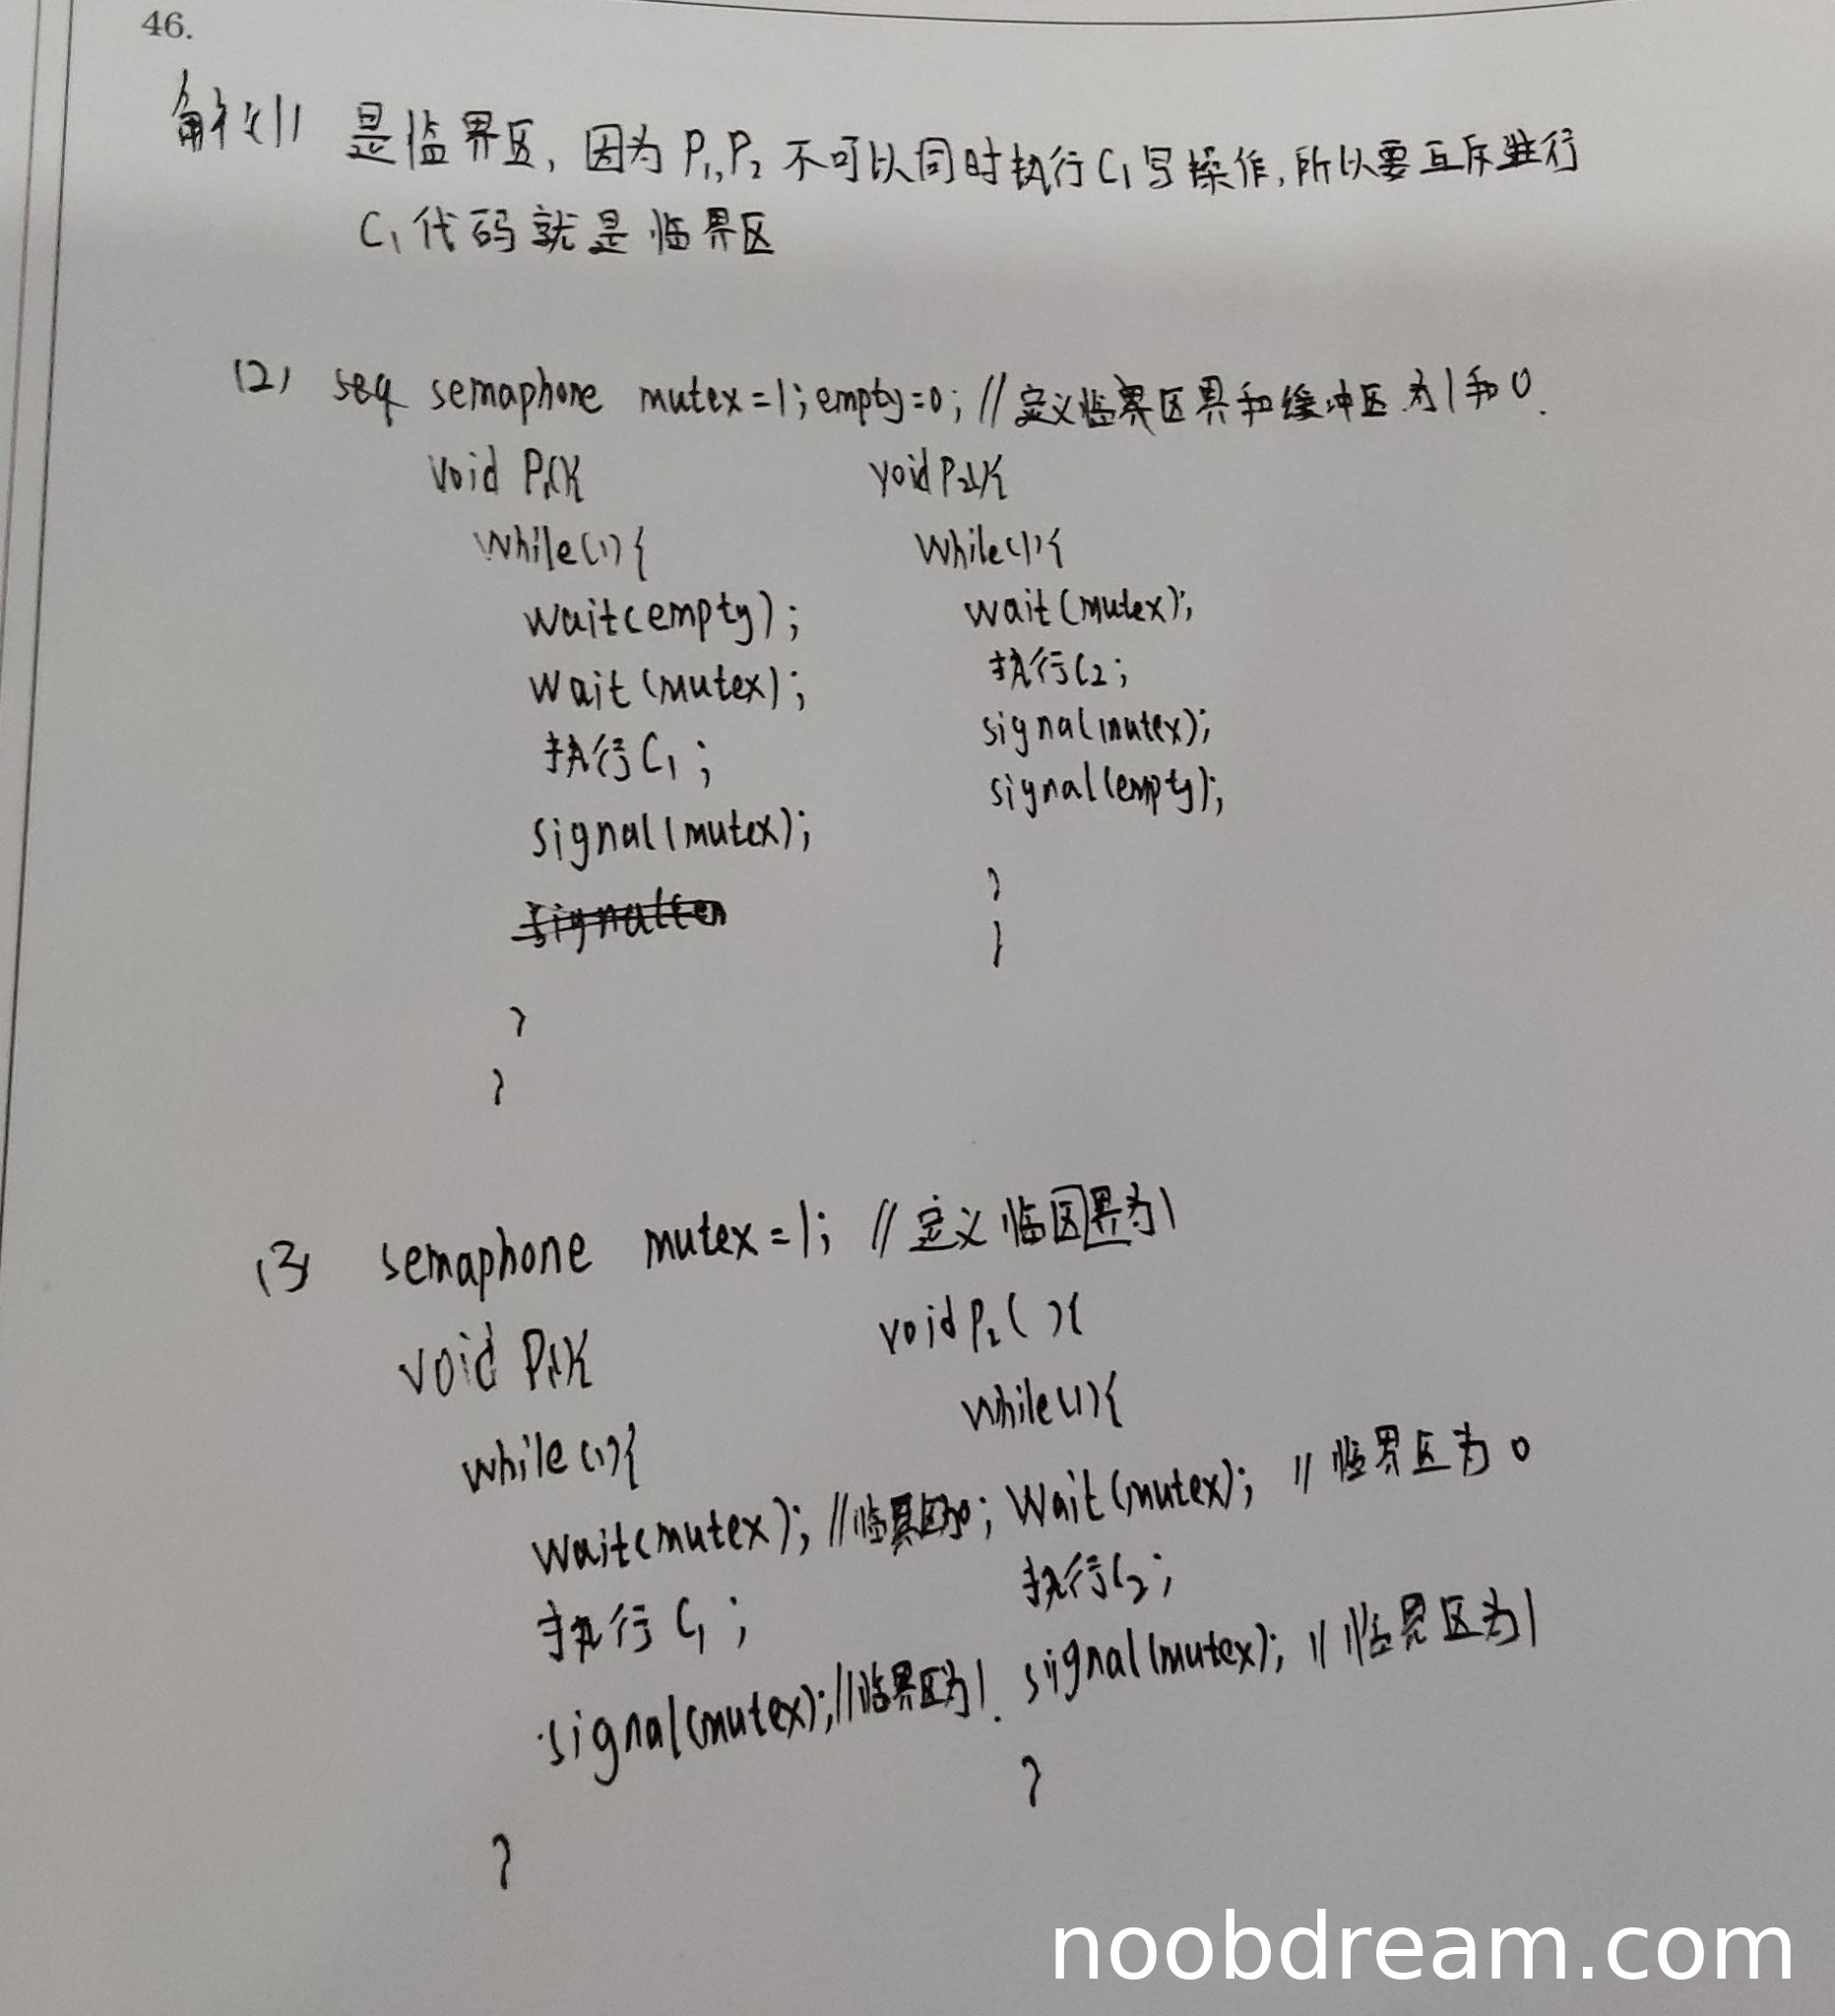 46.
解(1) 是临界区, 因为 P1,P2 不可以同时执行C1写操作,所以要互斥进行
C1代码就是临界区
(2) semaphone mutex=1; empty=0; //定义临界区界和缓冲区为1和0.
void P1(){
while(1){
wait(empty);
wait(mutex);
执行C1;
signal(mutex);
}
}
void P2(){
while(1){
wait(mutex);
执行C2;
signal(mutex);
signal(empty);
}
}
(3) semaphone mutex=1; //定义临区界为1
void P1(){
while(1){
wait(mutex); //临界区为0;
执行C1;
signal(mutex);//临界区为1.
}
void P2(){
while(1){
Wait(mutex); //临界区为0
执行C2;
signal(mutex); //临界区为1
}
noobdream.com